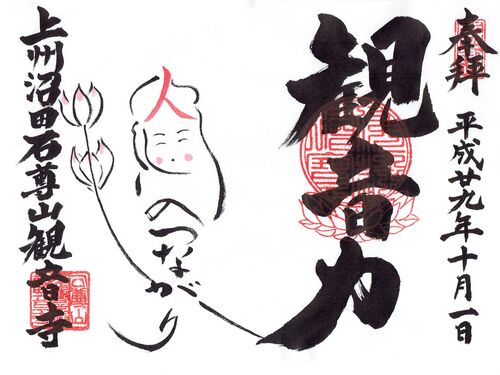 奉拝
平成廿九年十月一日
観音力
人
のつながり
上州沼田石尊山観音寺